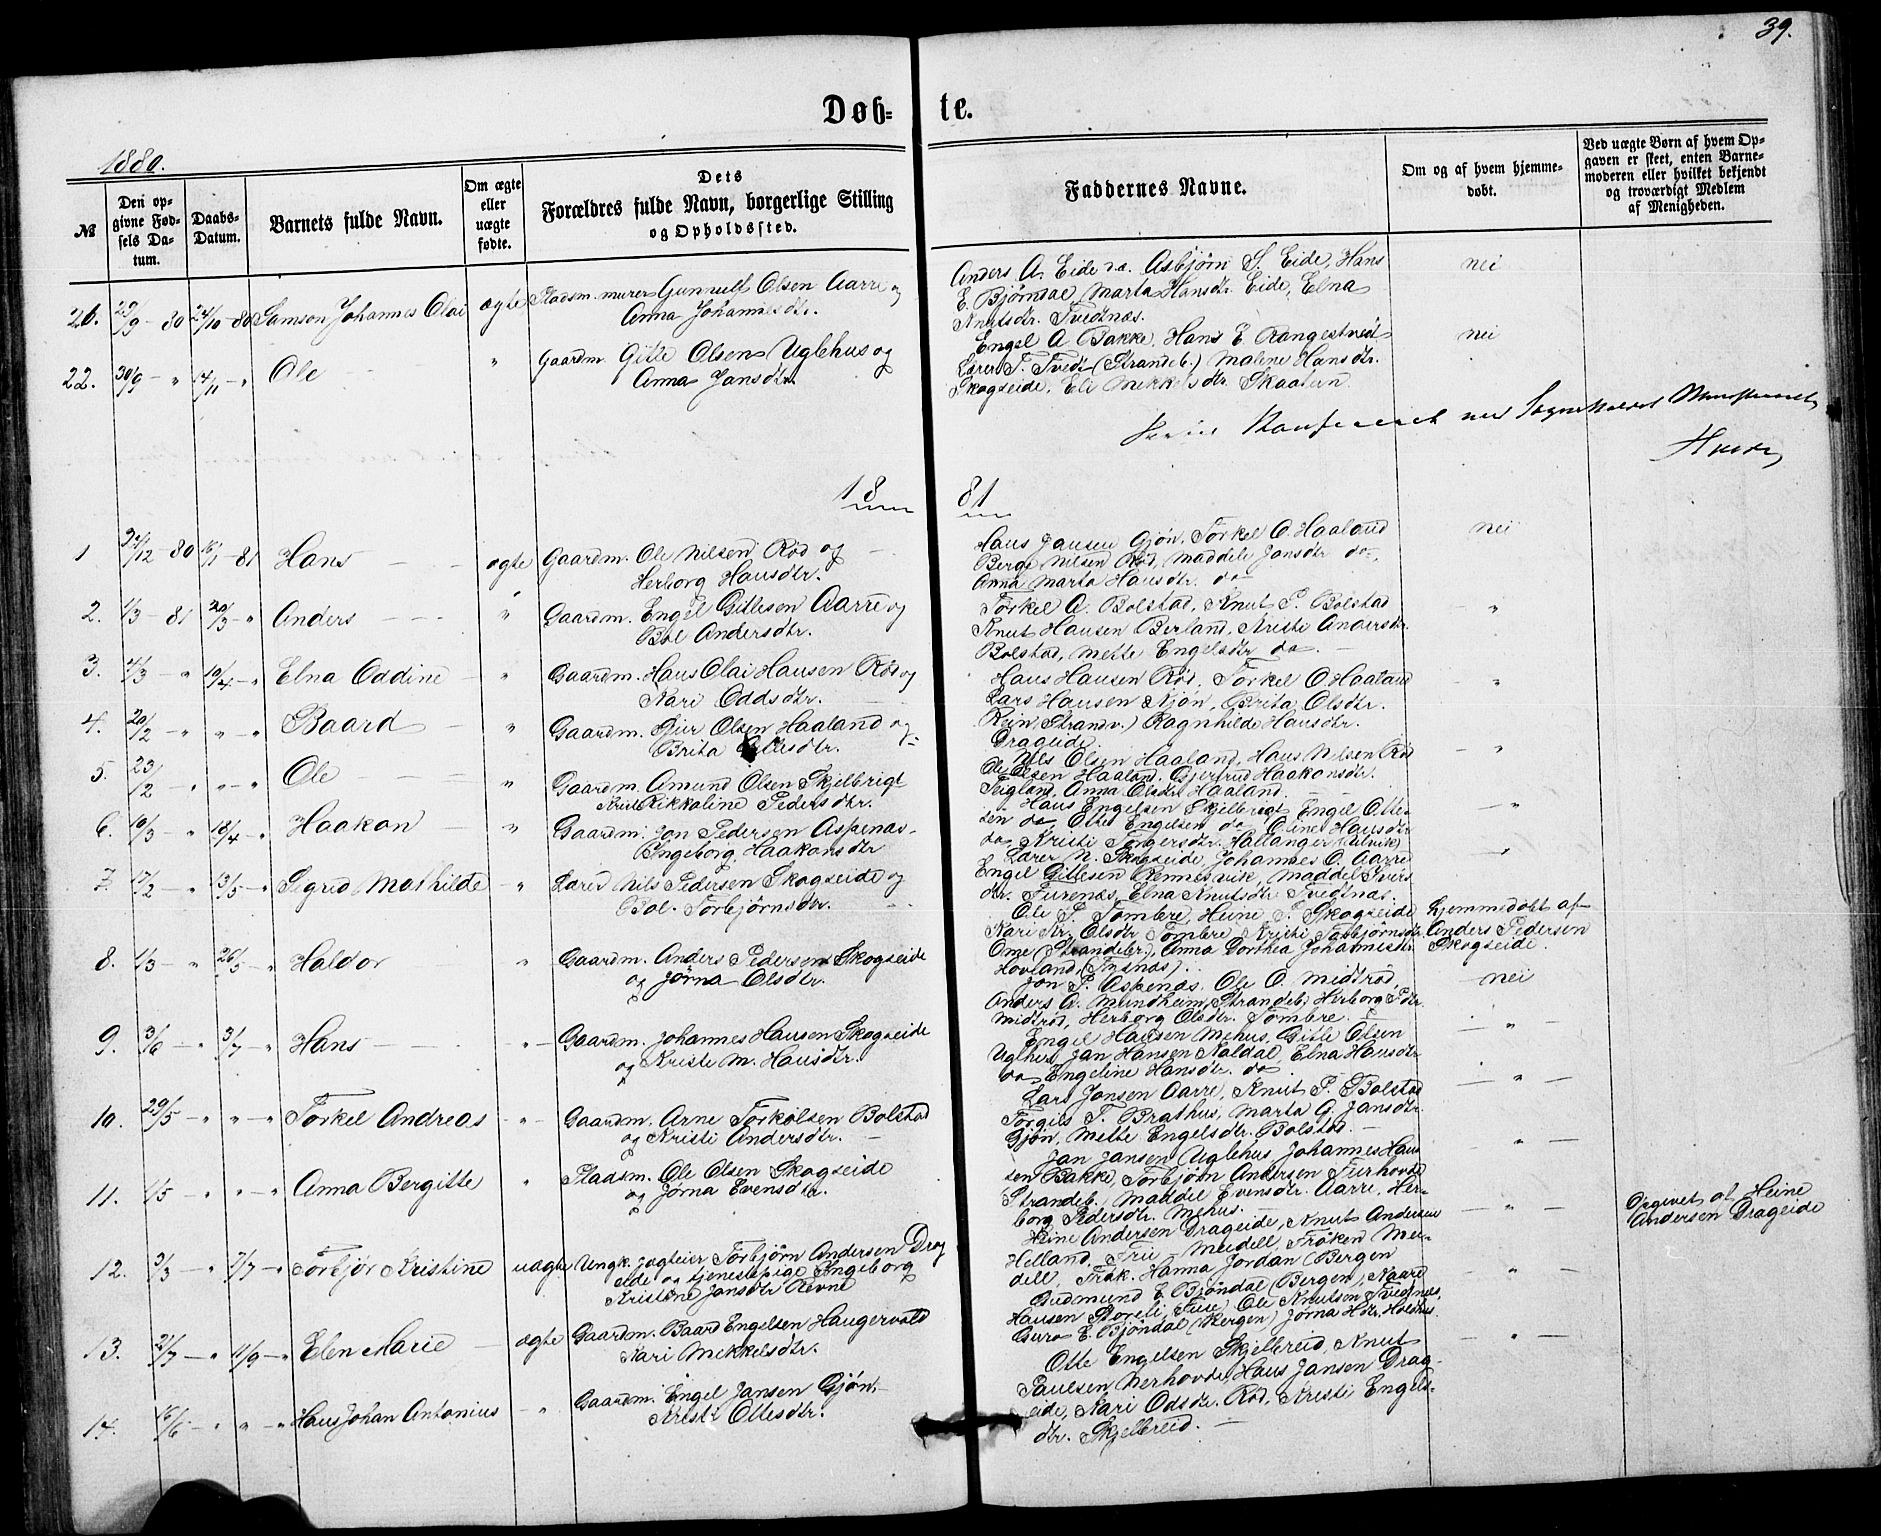 39.
Døb-
te.
1880.
№
Den op-
givne Fød-
sels Da-
tum.
Daabs-
Datum.
Barnets fulde Navn.
Om ægte
eller
uægte
fødte.
Dets
Forældres fulde Navn, borgerlige Stilling
og Opholdssted.
Faddernes Navne.
Om og af hvem hjemme-
døbt.
Ved uægte Børn af hvem Op-
gaven er skeet, enten Barne-
moderen eller hvilket bekjendt
og troværdigt Medlem
af Menigheden.
29/9 - 80 24/10 - 80 Samson Johannes Olai ægte Pladsm. murer Gunnulf Olsen Aarre og
Anna Johannesdtr.
Anders A. Eide Asbjørn S. Eide, Hans
E. Bjørndal, Marta Hansdtr. Eide, Elna
Knutsdtr. Tvedtnæs.
nei
22. 30/9 - " 14/11 - " Ole " Gaardm. Gitle Olsen Uglehus og
Anna Jansdtr.
Engel A. Bakke, Hans E. Rangestved
Lærer T. Tvedt (Strandeb.) Malene Hansdtr.
Skogseide, Eli Mikkelsdtr. Skaaten
nei
18
81
1 31/12 - 80 16/1 - 81 Hans ægte Gaardm. Ole Nilsen Rød og
Herborg Hansdtr.
Hans Jansen Gjøn, Torkel O. Haaland
Berge Nilsen Rød, Maddele Jansdtr do,
Anna Marta Hansdtr. do
nei
2. 1/3 - 81 20/3 - " Anders " Gaardm. Engel Gitlesen Aarre og
Boel Andersdtr.
Torkel A. Bolstad, Knut P. Bolstad
Knut Hansen Berland, Kristi Andersdtr.
Bolstad, Mette Engelsdtr do. -
"
3. 4/3 - " 10/4 - " Elna Oddine " Gaardm. Hans Olai Hansen Rød og
Kari Oddsdtr.
Hans Hansen Rød, Torkel O. Haaland
Lars Hansen Gjøn, Brita Olsdtr.
Rein (Strandv.) Ragnhilde Hansdtr.
Drageide.
"
4. 20/2 - " " - " Baard " Gaardm. Giur Olsen Haaland og
Brita dtr.
Nils Olsen Haaland, Hans Nilsen Rød
Ole Olsen Haaland, Gjertrud Haakonsdtr.
Teigland, Anna Olsdtr Haaland.
"
5. 23/2 - " " - " Ole " Gaardm. Amund Olsen Skjelbrigt
Rikkaline Pedersdtr.
Hans Engelsen Skjelbregt, Engel Otte-
sen do, Otte Engelsen do, Oline Hansdtr
do, Kristi Torgersdtr. Hallanger (Ulvik)
"
6. 10/3 - " 18/4 - " Haakon " Gaardm. Jon Pedersen Aspenæs -
Ingeborg Haakonsdtr
Lærer N. Skogseide, Johannes O. Aarre
Engel Gitlesen Rennesvik, Maddel Ivers
dtr. Furenæs, Elna Knutsdtr Tvedtnæs.
"
7. 17/2 - " 13/5 - " Sigred Mathilde " Lærer Nils Pedersen Skogseide og
Bol. Torbjørnsdtr.
Ole P. Tombre, Heine P. Skogseide
Kari Kr. Olsdtr Tombre, Kristi Torbjørnsdtr
Ome (Strandebr.), Anna Dorthea Johannesdtr
Hovland (Tysnæs).
hjemmedøbt af
Anders Pedersen
Skogseide.
8. 1/3 - " 26/5 - " Haldor " Gaardm. Anders Pedersen Skogseide
og Jørna Olsdtr.
Jon P. Aspenæs, Ole O. Midtrød,
Anders A. Mundheim, Strandeb, Herborg P. dtr
Midtrød, Herborg Olsdtr. Tombre.
nei
9. 3/6 - " 3/7 - " Hans " Gaardm. Johannes Hansen Skogseide
og Kriste M. Hansdtr.
Engel Hansen Mehus, Gitle Olsen
Uglhus, Jan Hansen Naldal, Elna Hansdtr
do, Engeline Hansdtr. do
"
10. 29/5 - " " - " Torkel Andreas " Gaardm. Arne Torkelsen Bolstad
og Kristi Andersdtr. -
Lars Jonsen Aarre, Knut P. Bolstad
Torgils T. Brathus, Marta G. Jansdtr.
Gjøn, Mette Engelsdtr. Bolstad. -
"
11. 1/5 - " " - " Anna Bergitte " Pladsm. Ole Olsen Skogseide
og Jørna Evensdtr.
Jan Jansen Uglehus, Johannes Han-
sen Bakke, Torbjørn Andersen Turhovde
Strandeb.) Maddel Evensdtr. Aarre, Her-
borg Pedersdtr. Mehus. -
"
12. 3/3 - " 7/7 - " Torbjør Kristine uægte Ungk. Jagteier Torbjørn Andersen Drag
eide og tjenestepige Ingeborg
Kristine Jansdtr Revne
Heine Andersen Drageide, Knut Andersen
Helland, Fru Meidell, Frøken Mei-
dell, Frøk. Hanna Jordan (Bergen
"
Opgivet af Heine
Andersen Drageide
13. 21/7 - " 11/9 - " Elen Marie ægte Gaardm. Baard Engelsen Haugervold
Kari Mikkelsdtr.
Gudmund E. Bjøndal (Bergen), Kaare
Hansen Fuse, Ole Knutsen Tvedtnæs,
Guro E. Bjøndal (Bergen) Jørna H.dtr. Holdhus
"
14. 16/6 - " " - " Hans Johan Antonius " Gaardm. Engel Jansen Gjøn, -
Kristi Ottesdtr.
Otte Engelsen Skjelbreid, Knut
Paulsen Nerhovde, Hans Jansen Drag-
eide, Kari Odsdtr. Rød, Kristi Engels-
dtr. Skjelbreid. -
"